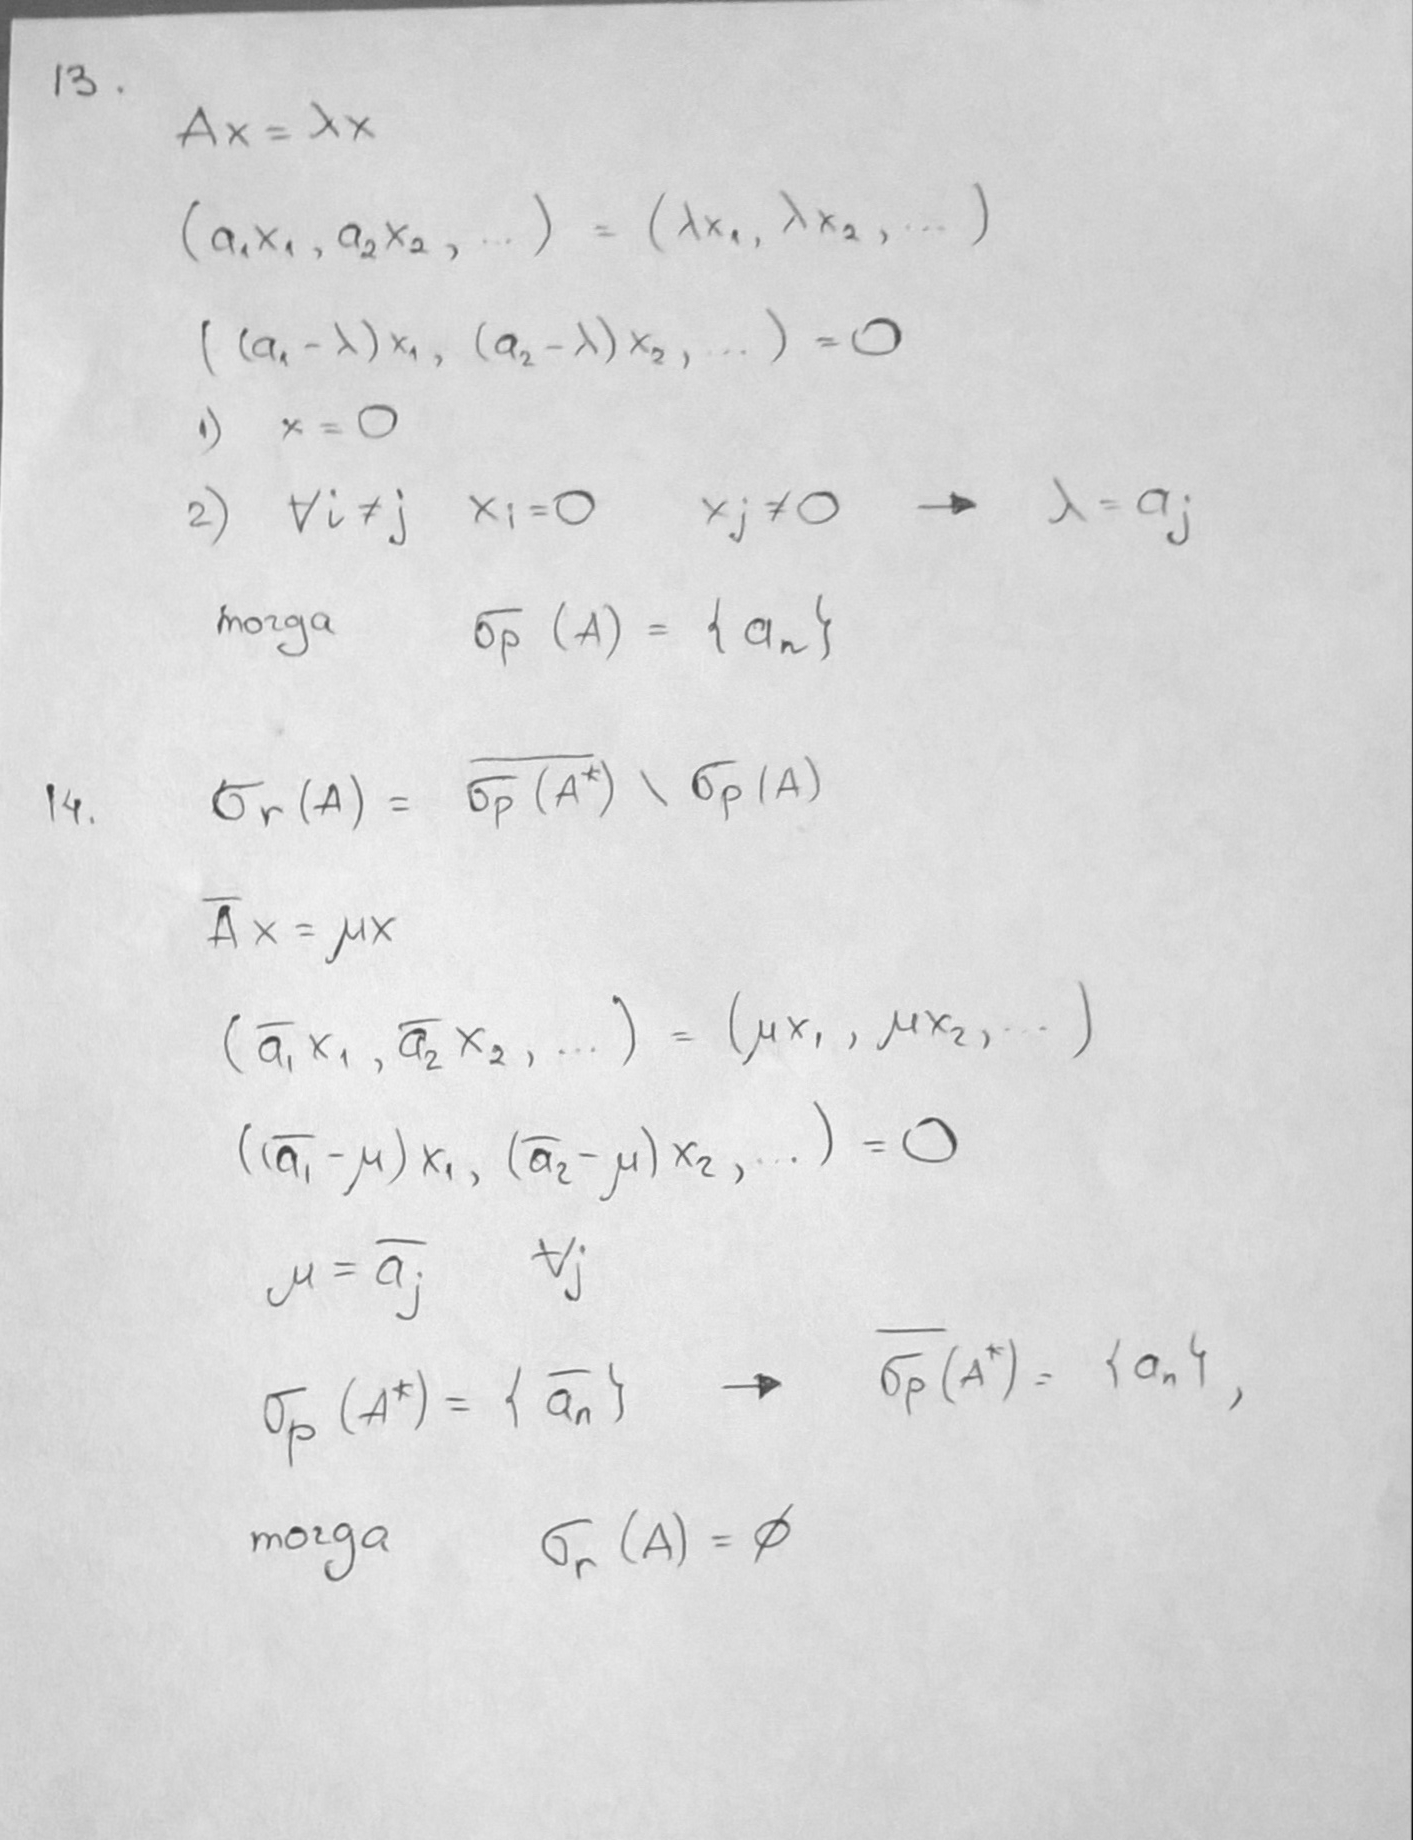 13.
Ax = λx
(a₁x₁, a₂x₂, ...) = (λx₁, λx₂, ...)
((a₁-λ)x₁, (a₂-λ)x₂, ...) = 0
1) x = 0
2) ∀i≠j xᵢ=0 xⱼ≠0 → λ=aⱼ
тогда σₚ(A) = {aₙ}
14. σᵣ(A) = \overline{σₚ(A*)} \ σₚ(A)
A̅x = μx
(a̅₁x₁, a̅₂x₂, ...) = (μx₁, μx₂, ...)
((a̅₁-μ)x₁, (a̅₂-μ)x₂, ...) = 0
μ = a̅ⱼ ∀j
σₚ(A*) = {a̅ₙ} → \overline{σₚ}(A*) = {aₙ},
тогда σᵣ(A) = ∅